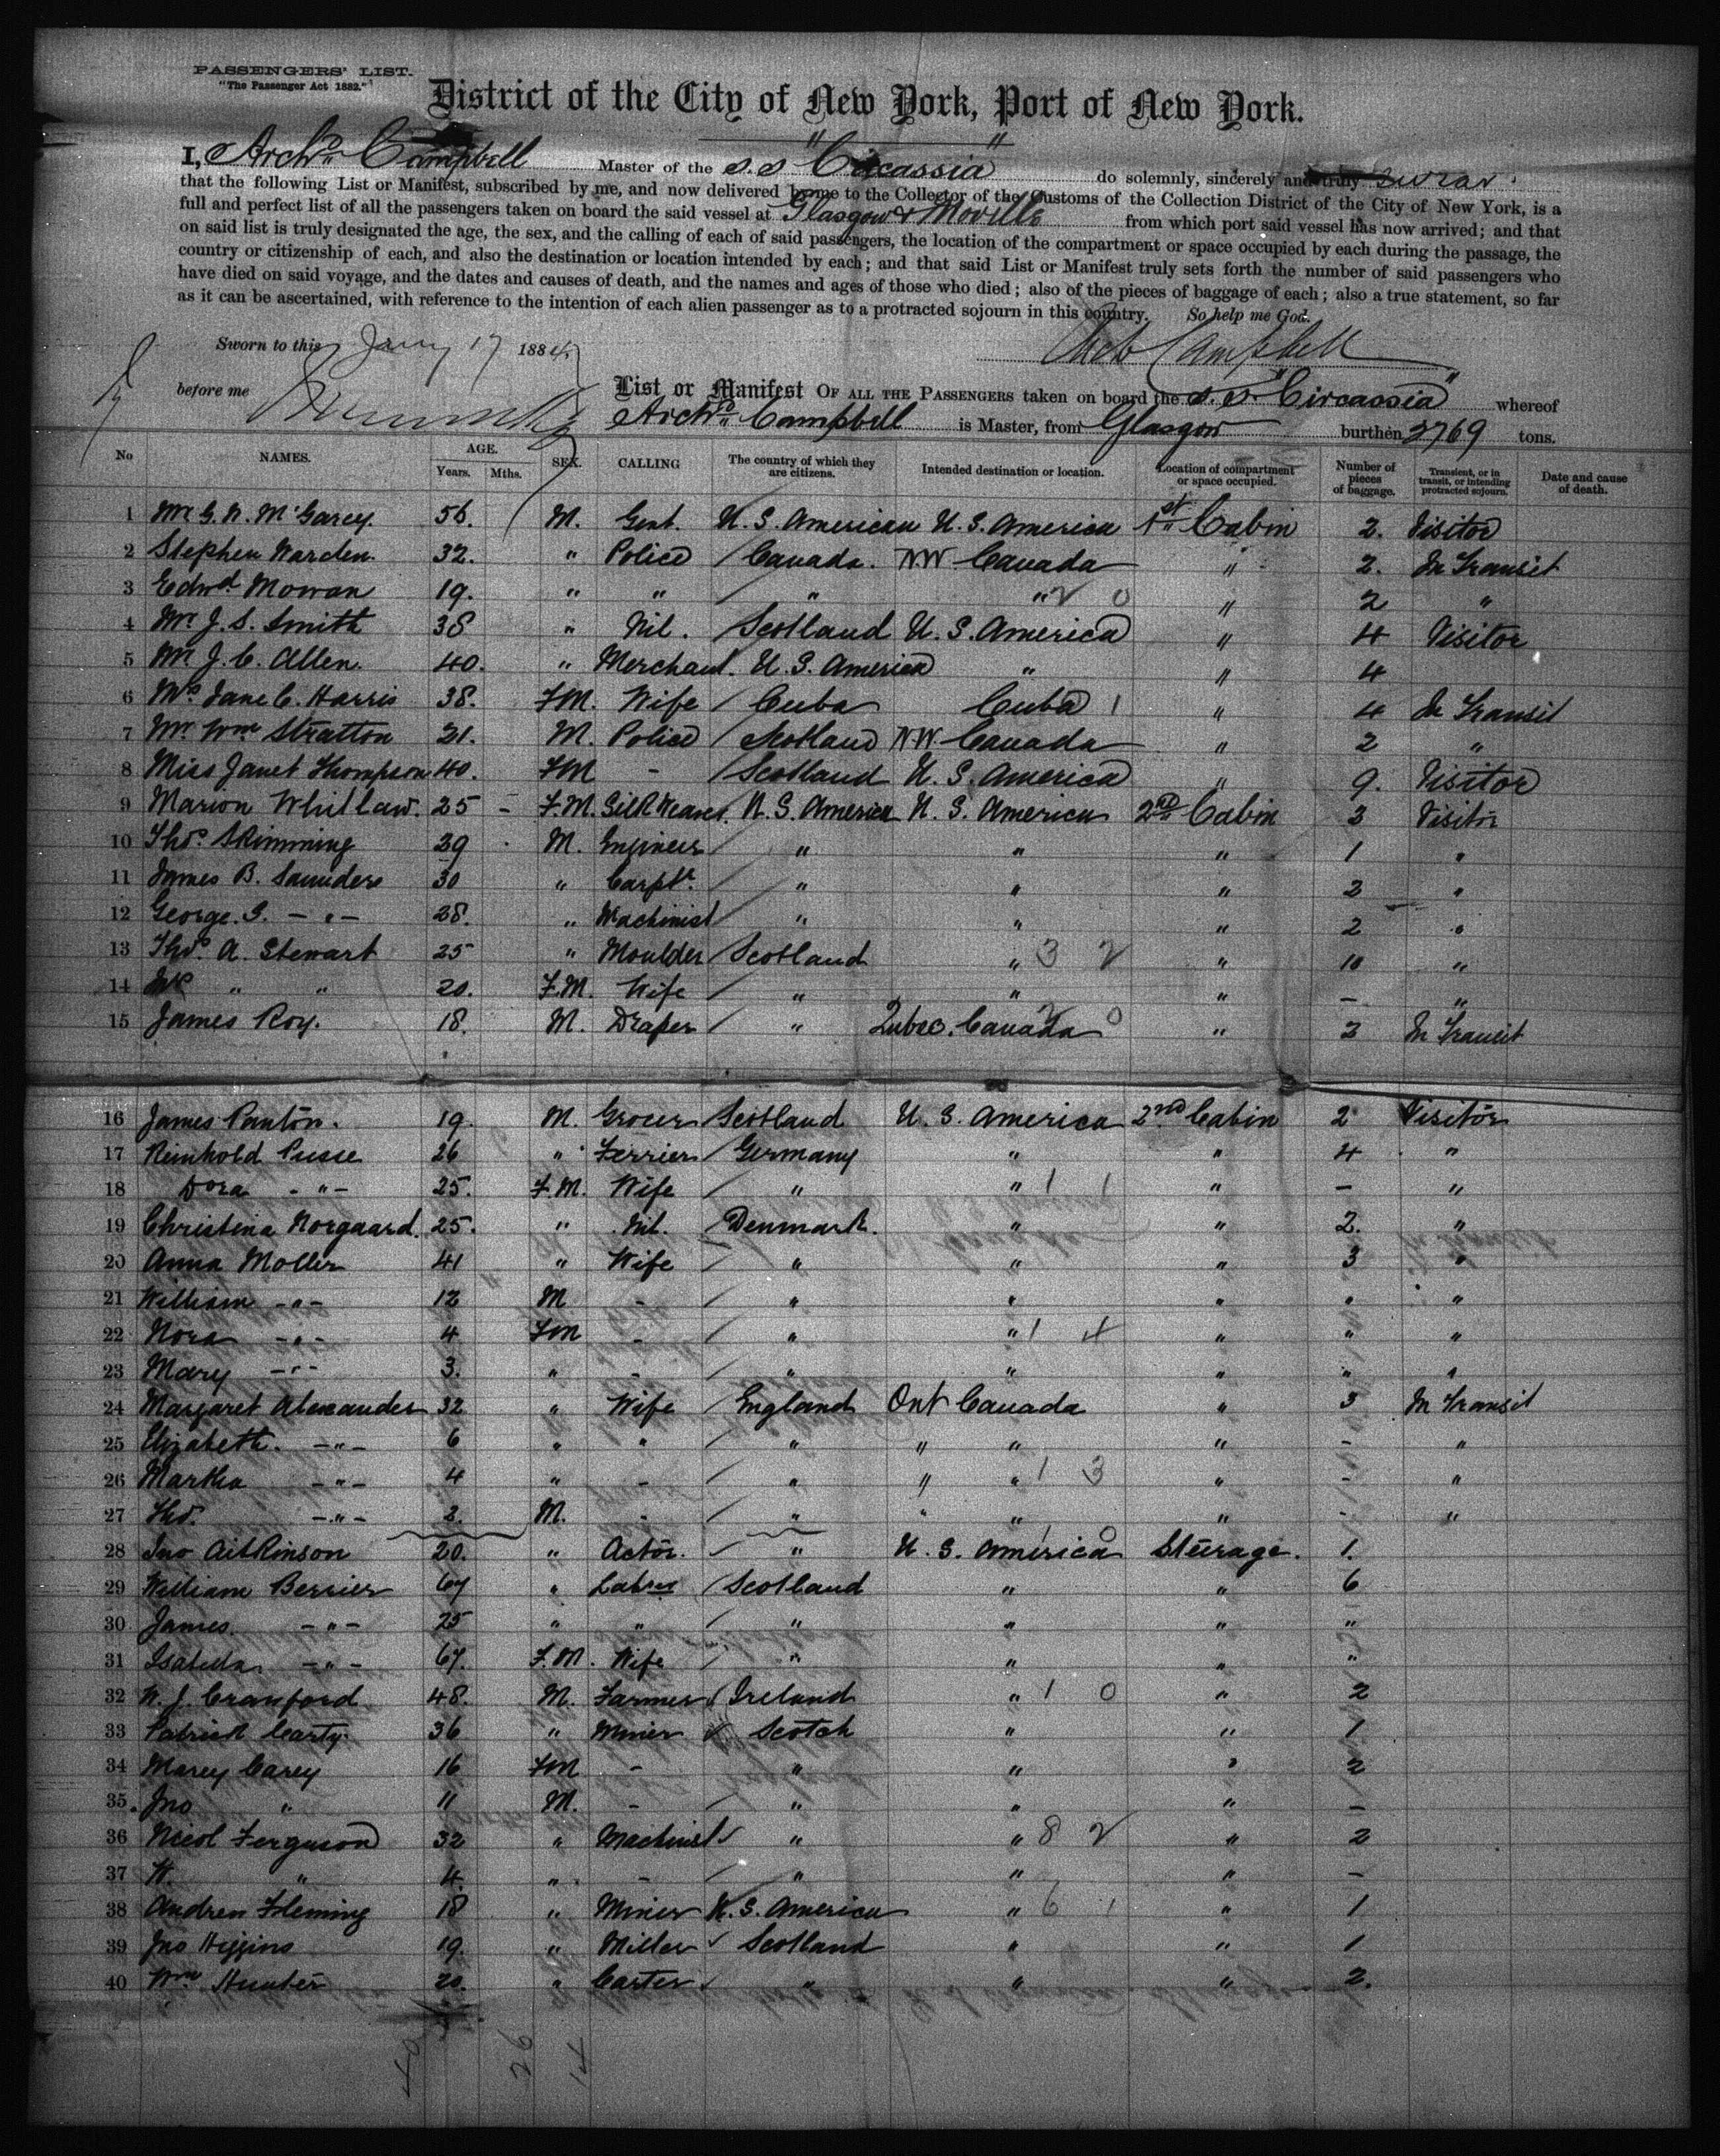 PASSENGERS' LIST.
"The Passenger Act 1882."
District of the City of New York, Port of New York.
I, Archd Campbell Master of the S.S "Circassia" do solemnly, sincerely and truly swear
that the following List or Manifest, subscribed by me, and now delivered by me to the Collector of the Customs of the Collection District of the City of New York, is a
full and perfect list of all the passengers taken on board the said vessel at Glasgow & Moville from which port said vessel has now arrived; and that
on said list is truly designated the age, the sex, and the calling of each of said passengers, the location of the compartment or space occupied by each during the passage, the
country or citizenship of each, and also the destination or location intended by each; and that said List or Manifest truly sets forth the number of said passengers who
have died on said voyage, and the dates and causes of death, and the names and ages of those who died; also of the pieces of baggage of each; also a true statement, so far
as it can be ascertained, with reference to the intention of each alien passenger as to a protracted sojourn in this country. So help me God.
Sworn to this Jany 17 1884 Archd Campbell
before me
List or Manifest OF ALL THE PASSENGERS taken on board the S.S. "Circassia" whereof
Archd. Campbell is Master, from Glasgow burthen 2769 tons.
No NAMES. AGE. Years. Mths. SEX. CALLING The country of which they are citizens. Intended destination or location. Location of compartment or space occupied. Number of pieces of baggage. Transient, or in transit, or intending protracted sojourn. Date and cause of death.
1 Mr G. N. McGarey. 56. M. Gent. U.S. American U.S. America 1st Cabin 2. Visitor
2 Stephen Warden. 32. " Police Canada. N.W. Canada " 2. In Transit
3 Edwd Mowan 19. " " " " 2 0 " 2 "
4 Mr J. S. Smith 38 " Nil. Scotland U.S. America " 4 Visitor
5 Mr J. C. Allen. 40. " Merchant. U.S. America " " 4
6 Mrs Jane C. Harris 38. FM. Wife Cuba Cuba 1 " 4 In Transit
7 Mr Wm Stratton 21. M. Police Scotland N.W. Canada " 2 "
8 Miss Janet Thompson 40. FM - Scotland U.S. America " 9. Visitor
9 Marion Whitlaw. 25 - F.M. Silk Weaver. U.S. America U.S. America 2nd Cabin 3 Visitor
10 Thos. Skimming 39 M. Engineer " " " 1 "
11 James B. Saunders 30 " Carptr. " " " 2 "
12 George. S. - " - 28. " Machinist " " " 2 "
13 Thos. A. Stewart 25 " Moulder Scotland " 3 2 " 10 "
14 " " 20. F.M. Wife " " " - "
15 James Roy. 18. M. Draper " Qubec. Canada 2 0 " 2 In Transit
16 James Panton. 19. M. Grocer Scotland U.S. America 2nd Cabin 2 Visitor
17 Reinhold Pusse 26 " Ferrier Germany " " 4 "
18 Dora - " - 25. F.M. Wife " " 1 1 " - "
19 Christina Norgaard. 25. " Nil. Denmark. " " 2. "
20 Anna Moller 41 " Wife " " " 3 "
21 William - " - 12 M - " " " " "
22 Nora - " - 4 FM - " " 1 4 " " "
23 Mary - " - 3. " - " " " " "
24 Margaret Alexander 32 " Wife England Ont Canada " 3 In Transit
25 Elizabeth. - " - 6 " " " " " " - "
26 Martha - " - 4 " - " " " 1 3 " - "
27 Thos. - " - 2. M. - " " " " - "
28 Jno Aitkinson 20. " Actor. " U.S. America 1 0 Steerage. 1.
29 William Berrier 67 " Labrer Scotland " " 6
30 James. - " - 25 " " " " " "
31 Isabella - " - 67. F.M. Wife " " " "
32 W. J. Crawford 48. M. Farmer Ireland " 1 0 " 2
33 Patrick Carty. 36 " Miner Scotch " " 1
34 Marey Carey 16 FM - " " " 2
35. Jno " 11 M. - " " " -
36 Nicol Ferguson 32 " Machinist " " 8 2 " 2
37 W. " 4. " - " " " -
38 Andrew Fleming 18 " Miner U.S. America " 6 1 " 1
39 Jno Higgins 19. " Miller Scotland " " 1
40 Wm Hunter 20. " Carter " " " 2.
40 26 14